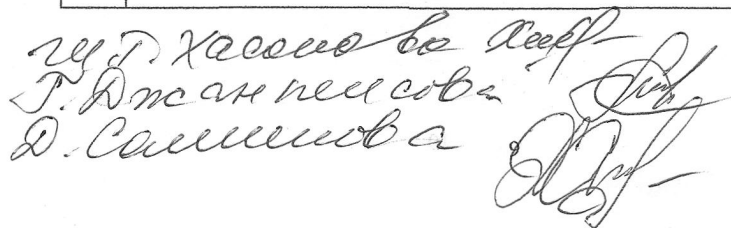 Г. Хасанова
Г. Джанпеисова
Д. Салимова